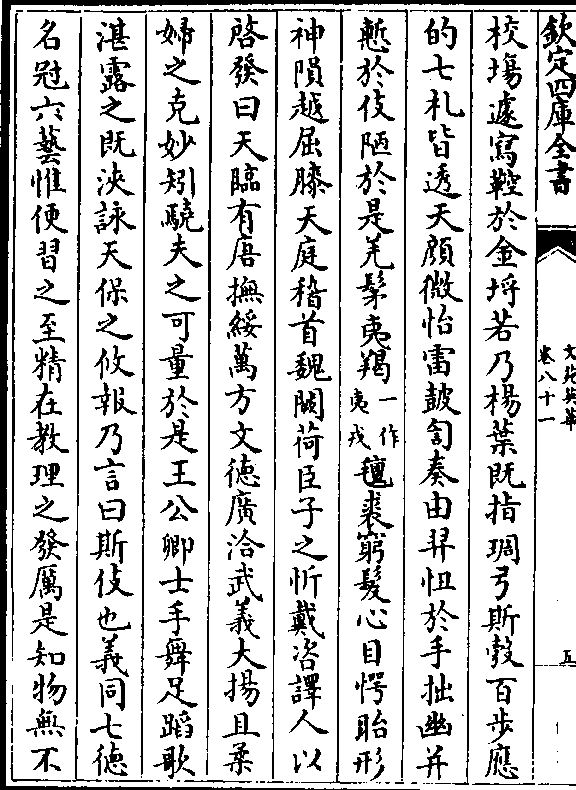 欽定四庫全書
文苑英華
卷八十一
五
校塲遽寫鞚於金埒若乃楊葉既指琱弓斯彀百步應
的七札皆透天顔微怡雷鼓訇奏由羿忸於手拙幽并
慙於伎陋於是羌髳夷羯一作夷戎氊裘窮髮心目愕眙形
神隕越屈膝天庭稽首魏闕荷臣子之忻戴咨譯人以
啓發曰天臨有唐撫綏萬方文徳廣洽武義大揚且柔
婦之克妙矧驍夫之可量於是王公卿士手舞足蹈歌
湛露之既浹詠天保之攸報乃言曰斯伎也義同七徳
名冠六藝惟便習之至精在教理之發厲是知物無不